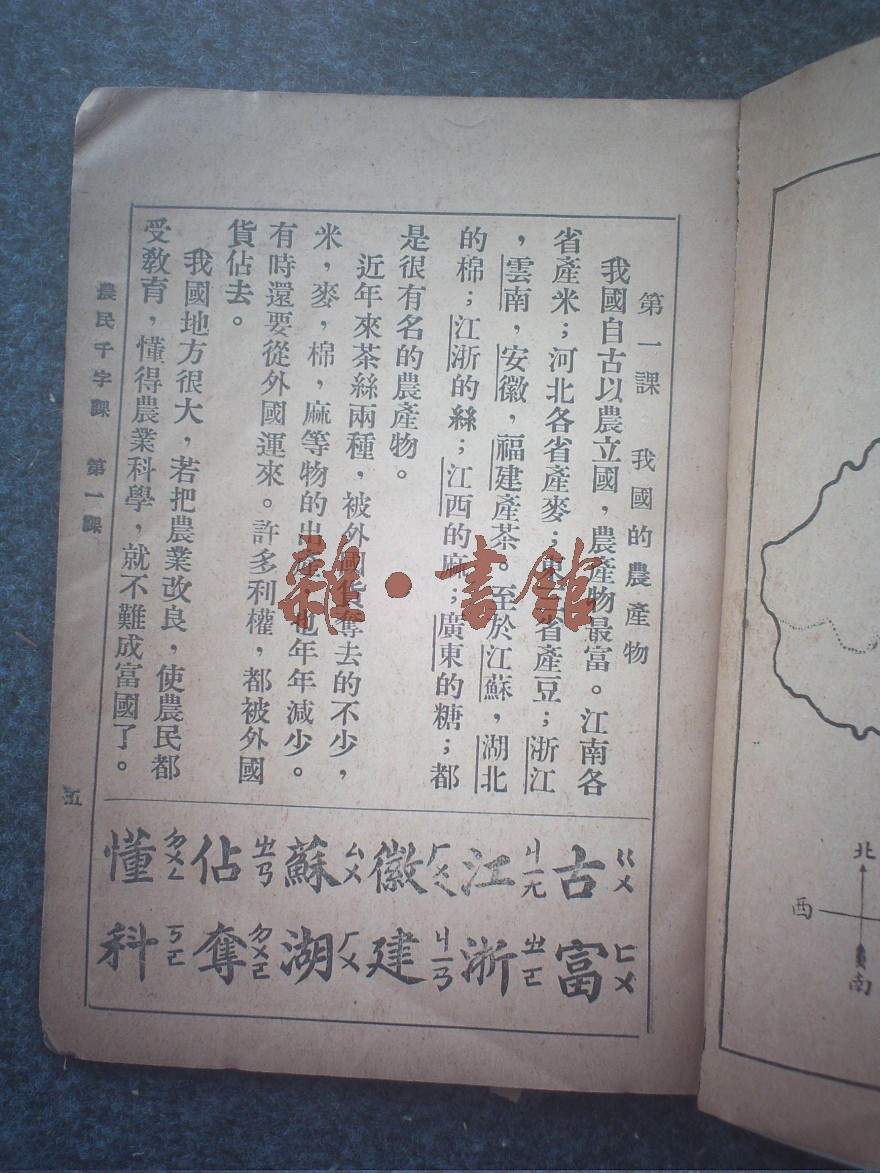 第一課 我國的農產物
我國自古以農立國，農產物最富。江南各
省產米；河北各省產麥；東省產豆；浙江
，雲南，安徽，福建產茶。至於江蘇，湖北
的棉；江浙的絲；江西的麻；廣東的糖；都
是很有名的農產物。
近年來茶絲兩種，被外國貨奪去的不少，
米，麥，棉，麻等物的出產，也年年減少。
有時還要從外國運來。許多利權，都被外國
貨佔去。
我國地方很大，若把農業改良，使農民都
受教育，懂得農業科學，就不難成富國了。
古ㄍㄨ 富ㄈㄨ
江ㄐㄧㄤ 浙ㄓㄜ
徽ㄏㄨㄟ 建ㄐㄧㄢ
蘇ㄙㄨ 湖ㄏㄨ
佔ㄓㄢ 奪ㄉㄨㄛ
懂ㄉㄨㄥ 科ㄎㄜ
農民千字課 第一課
五
雜·書館
北
西
南